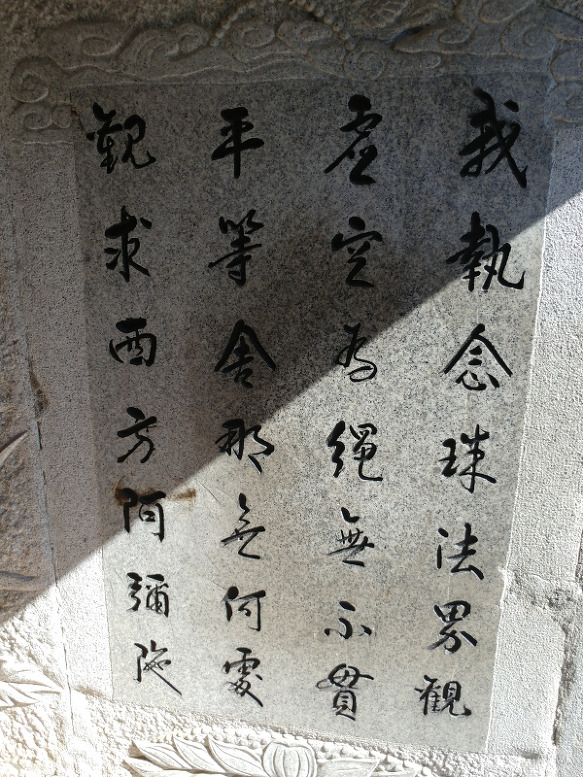 我執念珠法界觀
虛空為繩無不貫
平等舍那無何處
觀求西方阿彌陀